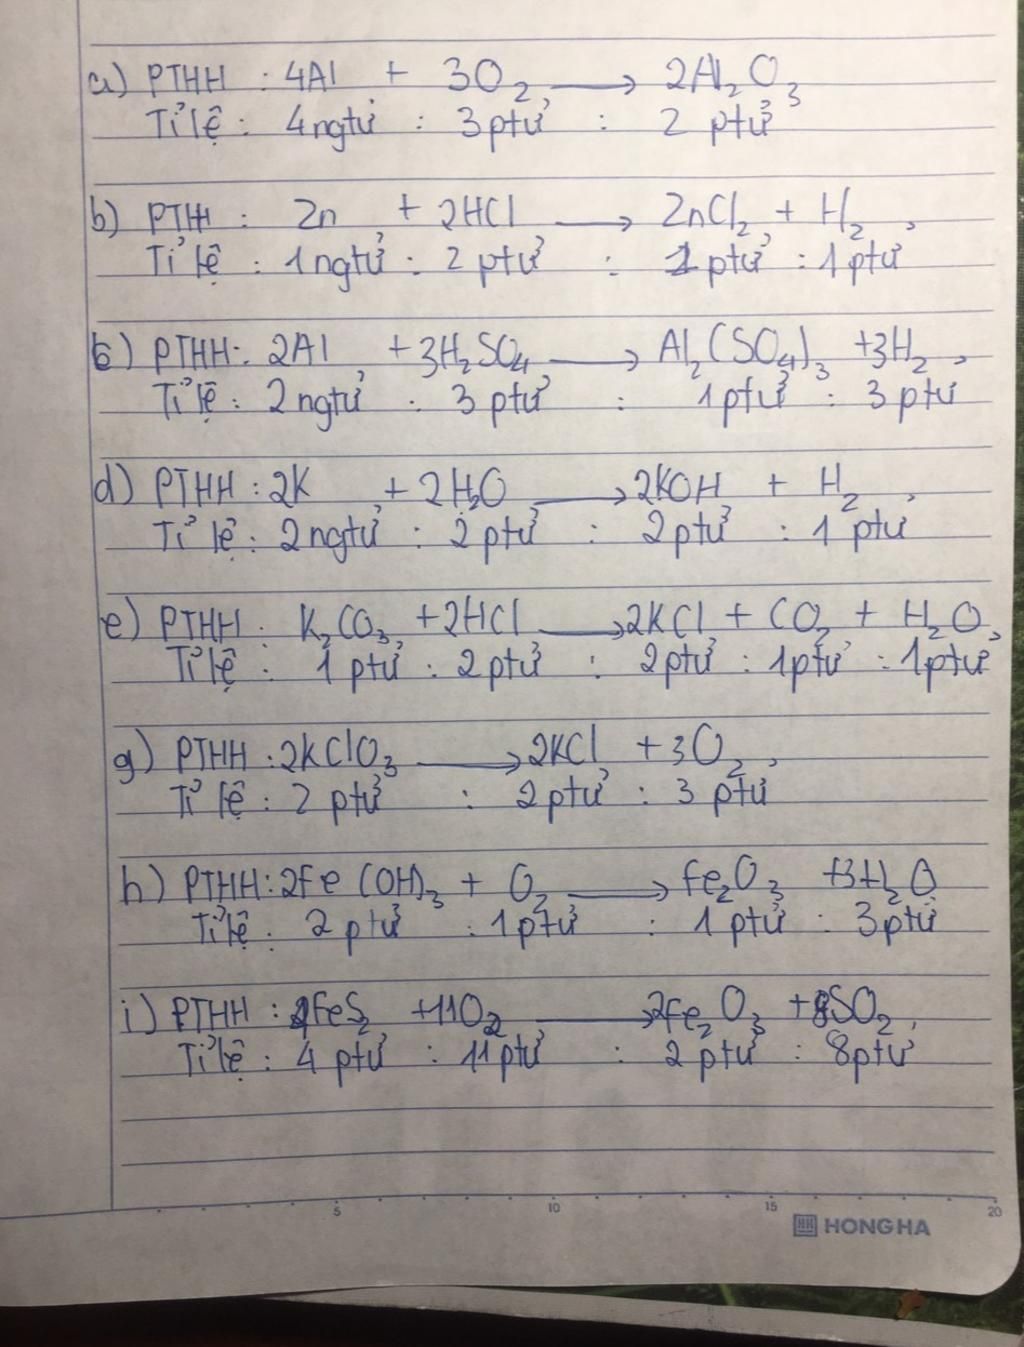 a) PTHH : 4Al + 3O₂ ⟶ 2Al₂O₃
Tỉ lệ : 4 ngtử : 3 ptử : 2 ptử
b) PTHH : Zn + 2HCl ⟶ ZnCl₂ + H₂
Tỉ lệ : 1 ngtử : 2 ptử : 1 ptử : 1 ptử
c) PTHH : 2Al + 3H₂SO₄ ⟶ Al₂(SO₄)₃ + 3H₂
Tỉ lệ : 2 ngtử : 3 ptử : 1 ptử : 3 ptử
d) PTHH : 2K + 2H₂O ⟶ 2KOH + H₂
Tỉ lệ : 2 ngtử : 2 ptử : 2 ptử : 1 ptử
e) PTHH : K₂CO₃ + 2HCl ⟶ 2KCl + CO₂ + H₂O
Tỉ lệ : 1 ptử : 2 ptử : 2 ptử : 1 ptử : 1 ptử
g) PTHH : 2KClO₃ ⟶ 2KCl + 3O₂
Tỉ lệ : 2 ptử : 2 ptử : 3 ptử
h) PTHH : 2Fe(OH)₃ + O₂ ⟶ Fe₂O₃ + 3H₂O
Tỉ lệ : 2 ptử : 1 ptử : 1 ptử : 3 ptử
i) PTHH : 4FeS₂ + 11O₂ ⟶ 2Fe₂O₃ + 8SO₂
Tỉ lệ : 4 ptử : 11 ptử : 2 ptử : 8 ptử
5 10 15 20
HH HONG HA